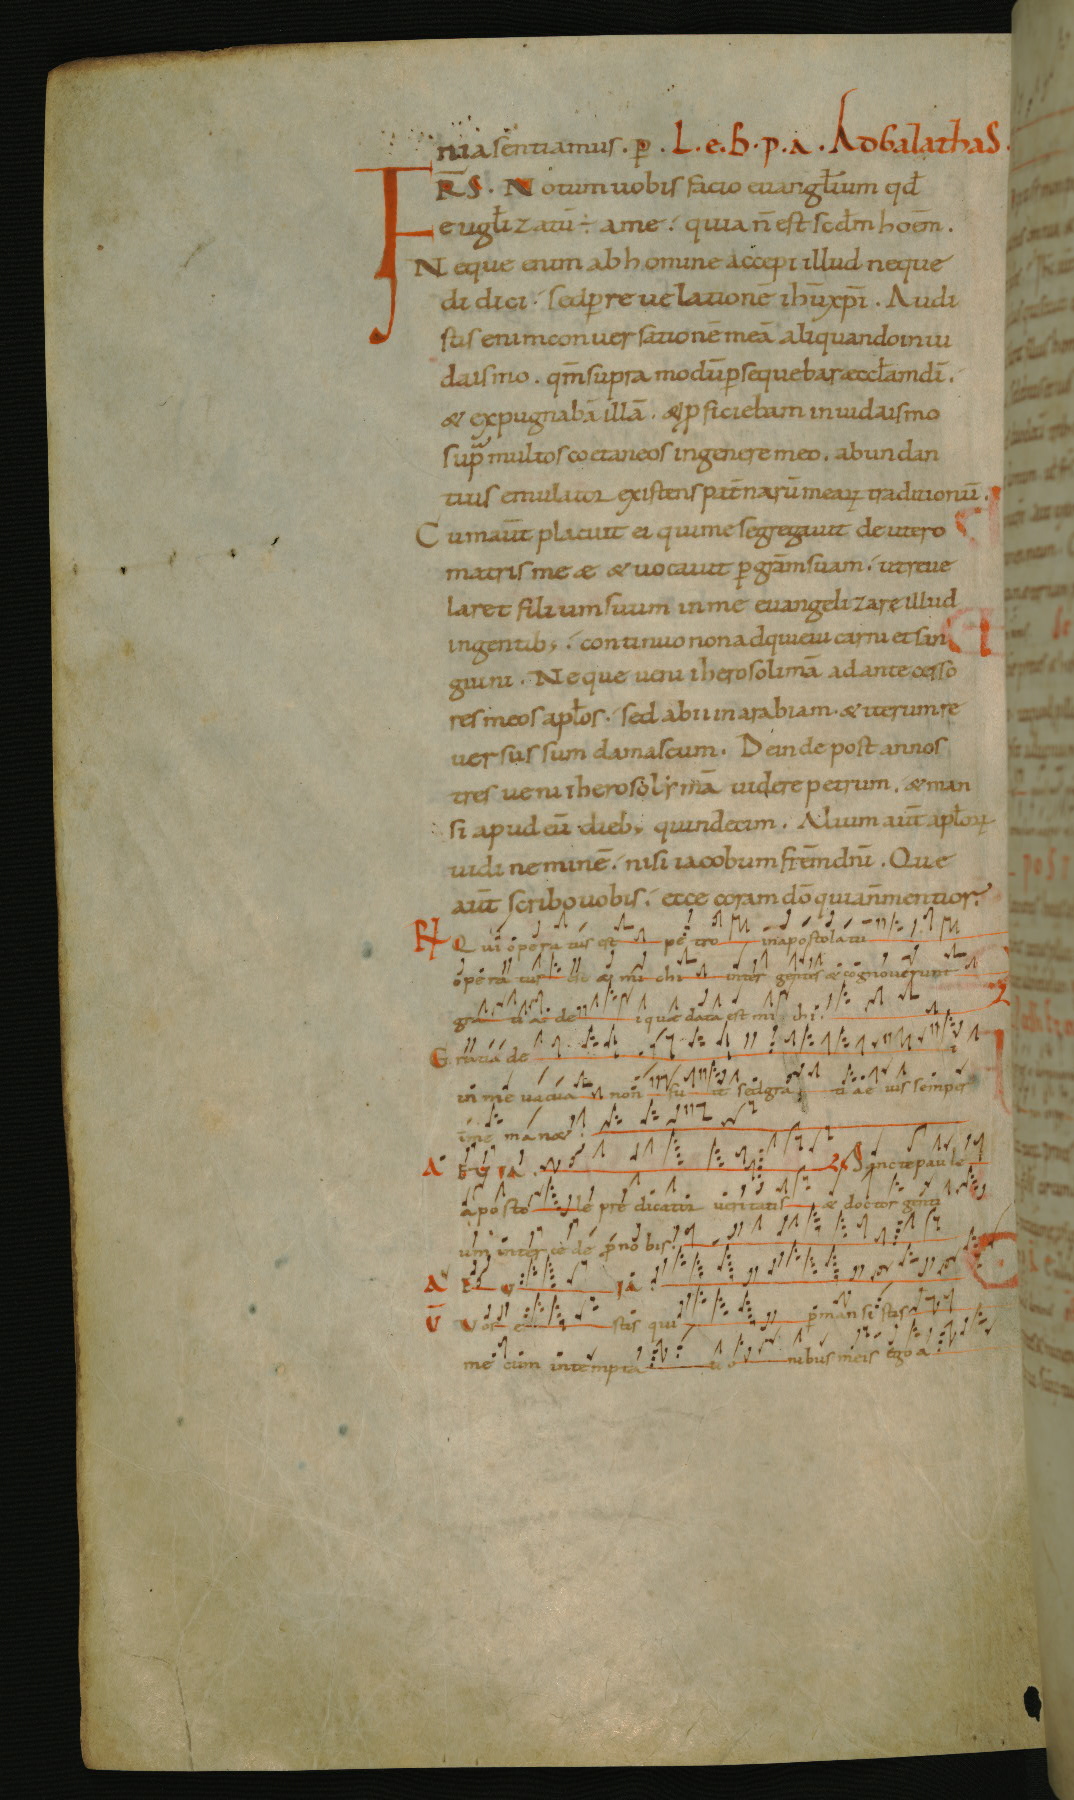 nia sentiamus . p̄ . L . e . b . p . a . Ad Galathas .
FRS . Notum uobis facio euangl̄ium qd̄
eugl̄izatū ÷ a me . quia n̄ est scd̄m hoēm .
Neque enim ab homine accepi illud neque
didici . sed per reuelationē ihū xp̄i . Audi
stis enim conuersationē meā aliquando in iu
daismo . qm̄ supra modū persequebar æccl̄am dī .
& expugnabā illā . & proficiebam in iudaismo
sup̄ multos coetaneos in genere meo . abundan
tius emulator existens pat̄narū mearꝝ traditionū .
Cum aūt placuit ei qui me segregauit de utero
matris meæ & uocauit p̄ grām suam . ut reue
laret filium suum in me euangelizare illud
in gentib; . continuo non adquieui carni et san
guini . Neque ueni iherosolimā ad antecesso
res meos apl̄os . sed abii in arabiam . & iterum re
uersus sum damascum . Deinde post annos
tres ueni iherosolymā uidere petrum . & man
si apud eū dieb; quindecim . Alium aūt apl̄orꝝ
uidi neminē . nisi iacobum frēm dnī . Que
aūt scribo uobis . ecce coram dō quia n̄ mentior .
R Qui operatus est petro in apostolatu
operatus est & mi chi inter gentes & cognouerunt
gratiae dei quae data est mi hi .
Gratia dei
in me uacua non fu it sed gra ti a e ius semper
in me manet .
A EUIA . Sancte paule
aposto le predicator ueritatis & doctor genti
um intercede p̄ nobis .
A E U IA
V Vos e stis qui p̄mansistis
me cum in tempta ti o nibus meis ego a